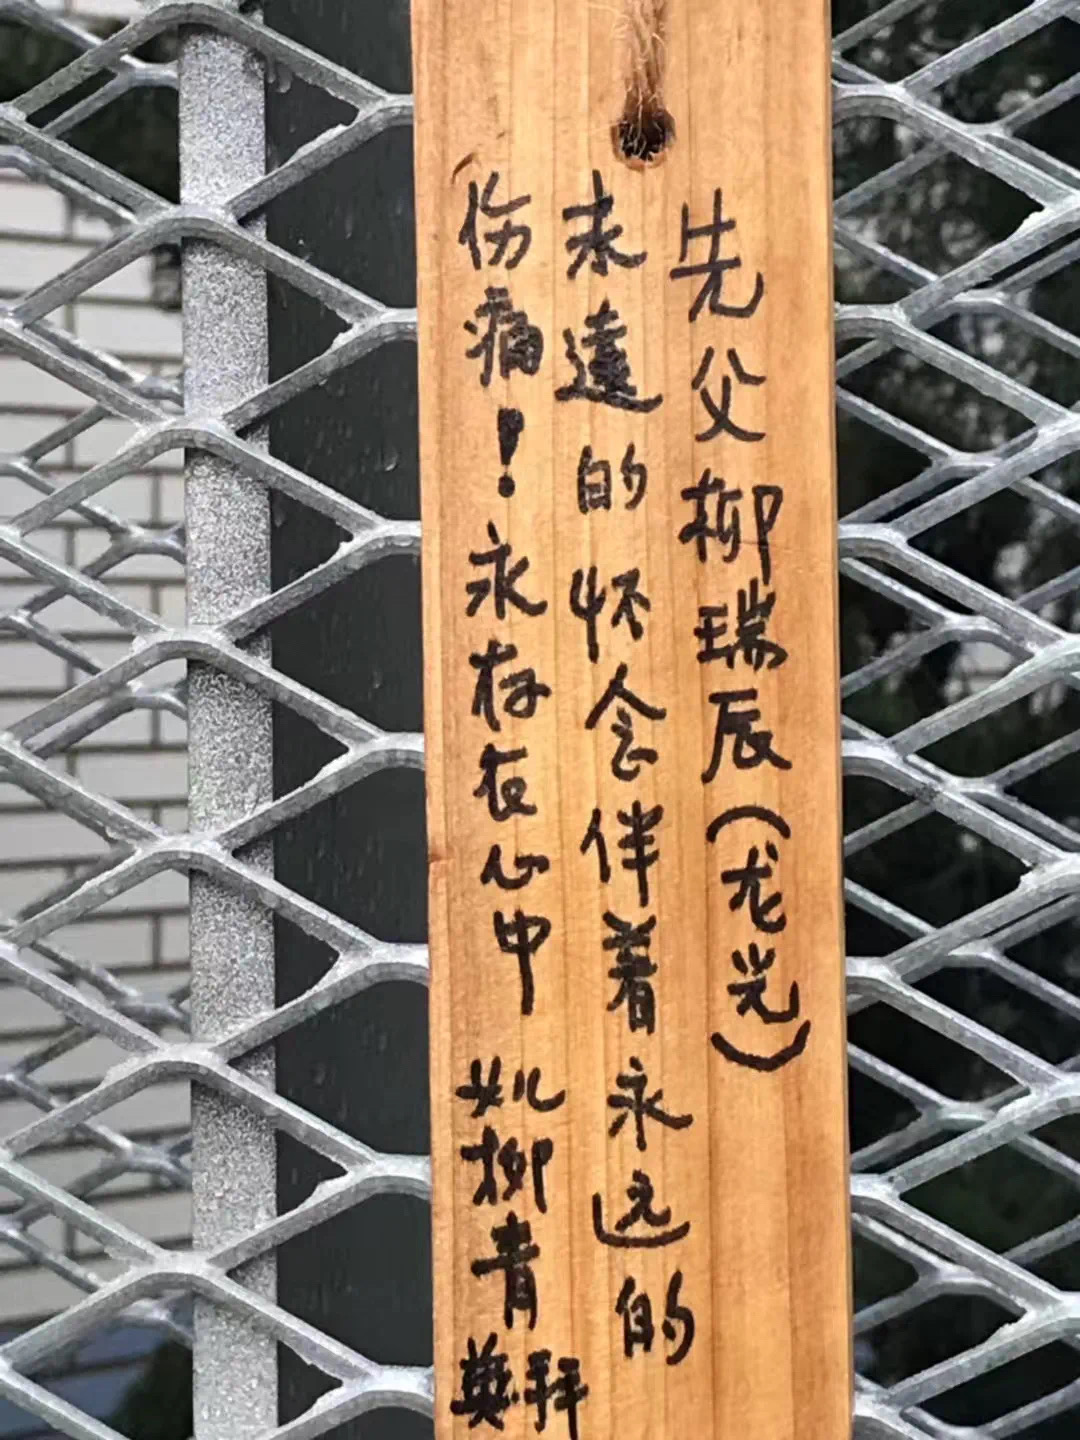 先父柳瑞辰(龙光)
永遠的怀念伴着永远的
伤痛！永存在心中 女儿柳青英拜